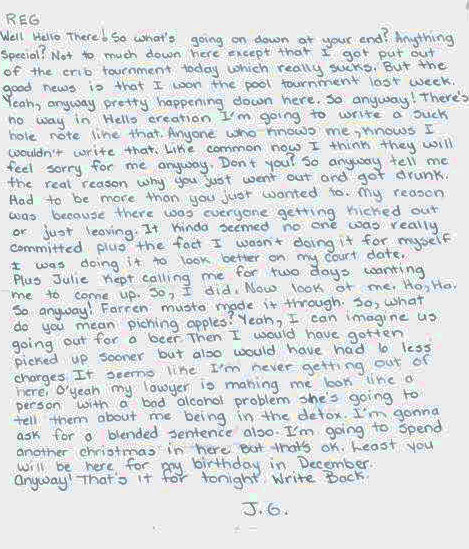 REG
Well Hello There! So what's going on down at your end? Anything
Special? Not to much down here except that I got put out
of the crib tournment today which really sucks. But the
good news is that I won the pool tournment last week.
Yeah, anyway pretty happening down here. So anyway! There's
no way in Hells creation I'm going to write a suck
hole note like that. Anyone who knows me, knows I
wouldn't write that. Like common now I think they will
feel sorry for me anyway. Don't you? So anyway tell me
the real reason why you just went out and got drunk.
Had to be more than you just wanted to. My reason
was because there was everyone getting kicked out
or just leaving. It kinda seemed no one was really
committed plus the fact I wasn't doing it for myself
I was doing it to look better on my court date.
Plus Julie kept calling me for two days wanting
me to come up. So, I did. Now look at me. Ho, Ha.
So anyway! Farren musta made it through. So, what
do you mean piching apples? Yeah, I can imagine us
going out for a beer. Then I would have gotten
picked up sooner but also would have had 16 less
charges. It seems like I'm never getting out of
here. O'yeah my lawyer is making me look like a
person with a bad alcohol problem she's going to
tell them about me being in the detox. I'm gonna
ask for a blended sentence also. I'm going to spend
another christmas in here but that's ok. Least you
will be here for my birthday in December.
Anyway! That's it for tonight. Write Back.
J.G.